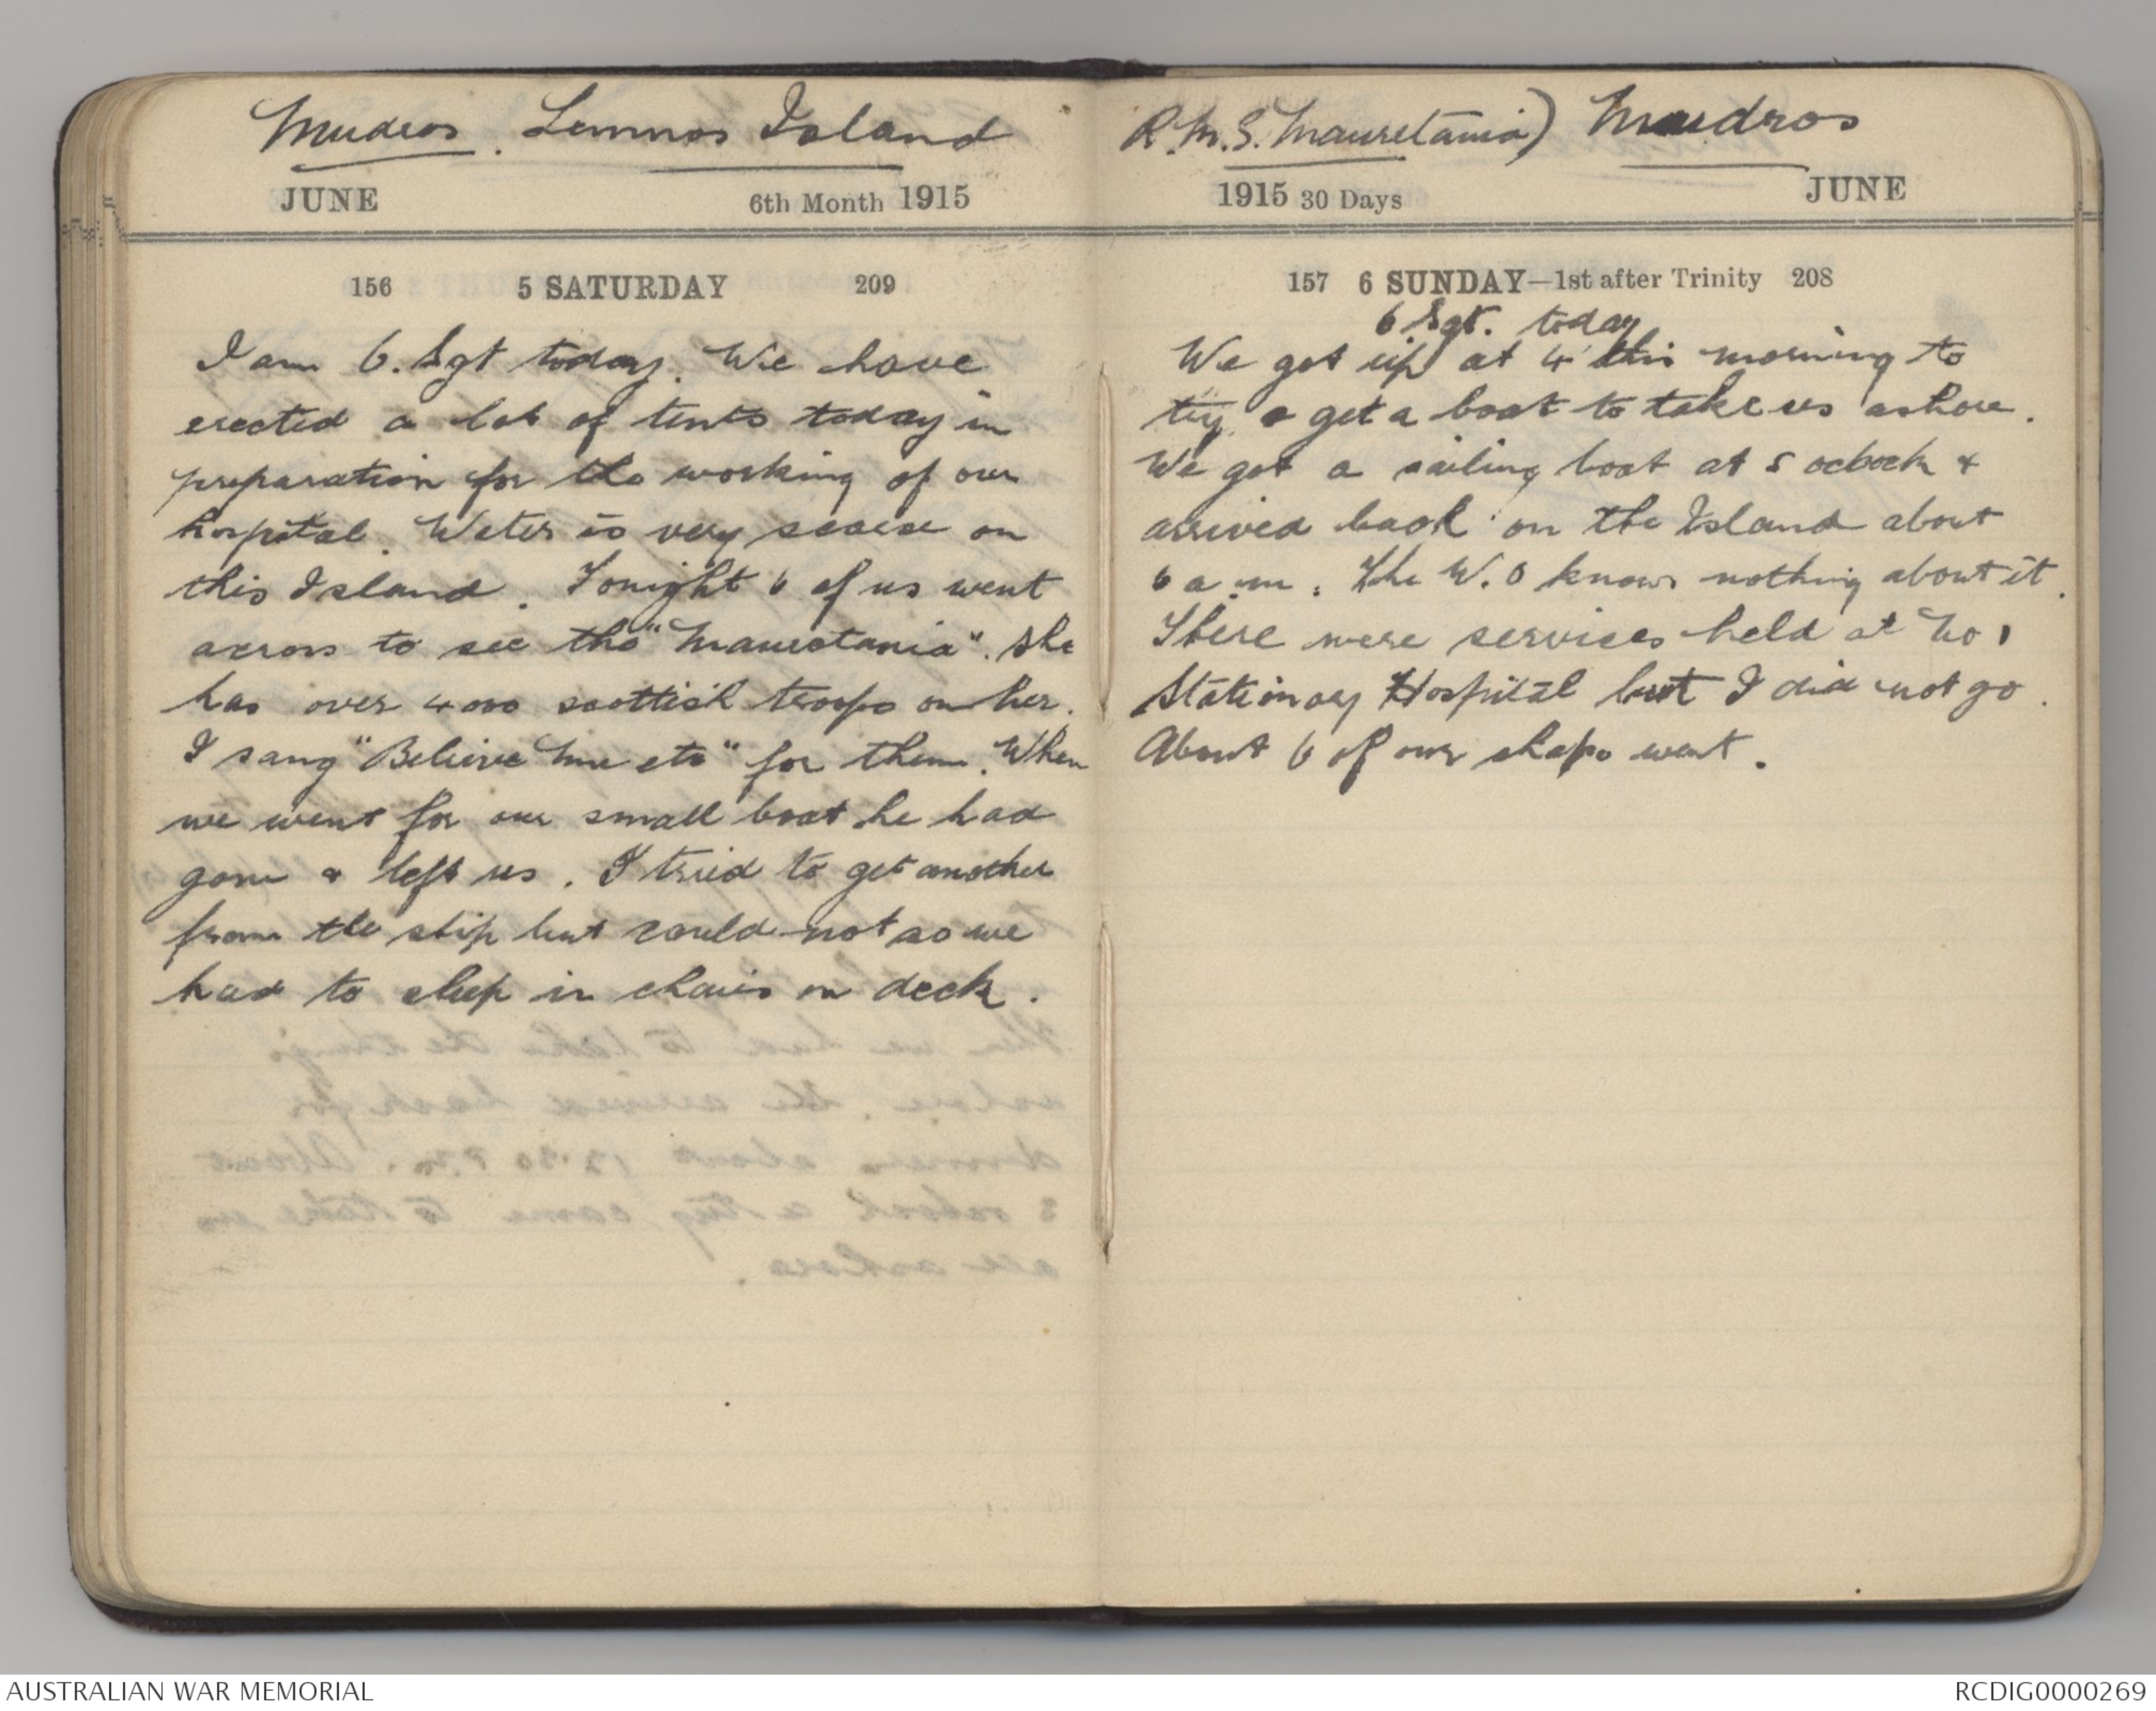 Mudros. Lemnos Island
JUNE 6th Month 1915
156 5 SATURDAY 209
I am O. Sgt today. We have
erected a lot of tents today in
preparation for the working of our
hospital. Water is very scarce on
this Island. Tonight 6 of us went
across to see the "Mauretania". She
has over 4000 scottish troops on her.
I sang "Believe Me etc" for them. When
we went for our small boat he had
gone & left us. I tried to get another
from the ship but could not so we
had to sleep in chairs on deck.
R.M.S. Mauretania) Mudros
1915 30 Days JUNE
157 6 SUNDAY—1st after Trinity 208
O Sgt. today
We got up at 4 this morning to
try & get a boat to take us ashore.
We got a sailing boat at 5 oclock &
arrived back on the Island about
6 a.m. The W.O knows nothing about it.
There were services held at No 1
Stationary Hospital but I did not go.
About 6 of our chaps went.
AUSTRALIAN WAR MEMORIAL
RCDIG0000269